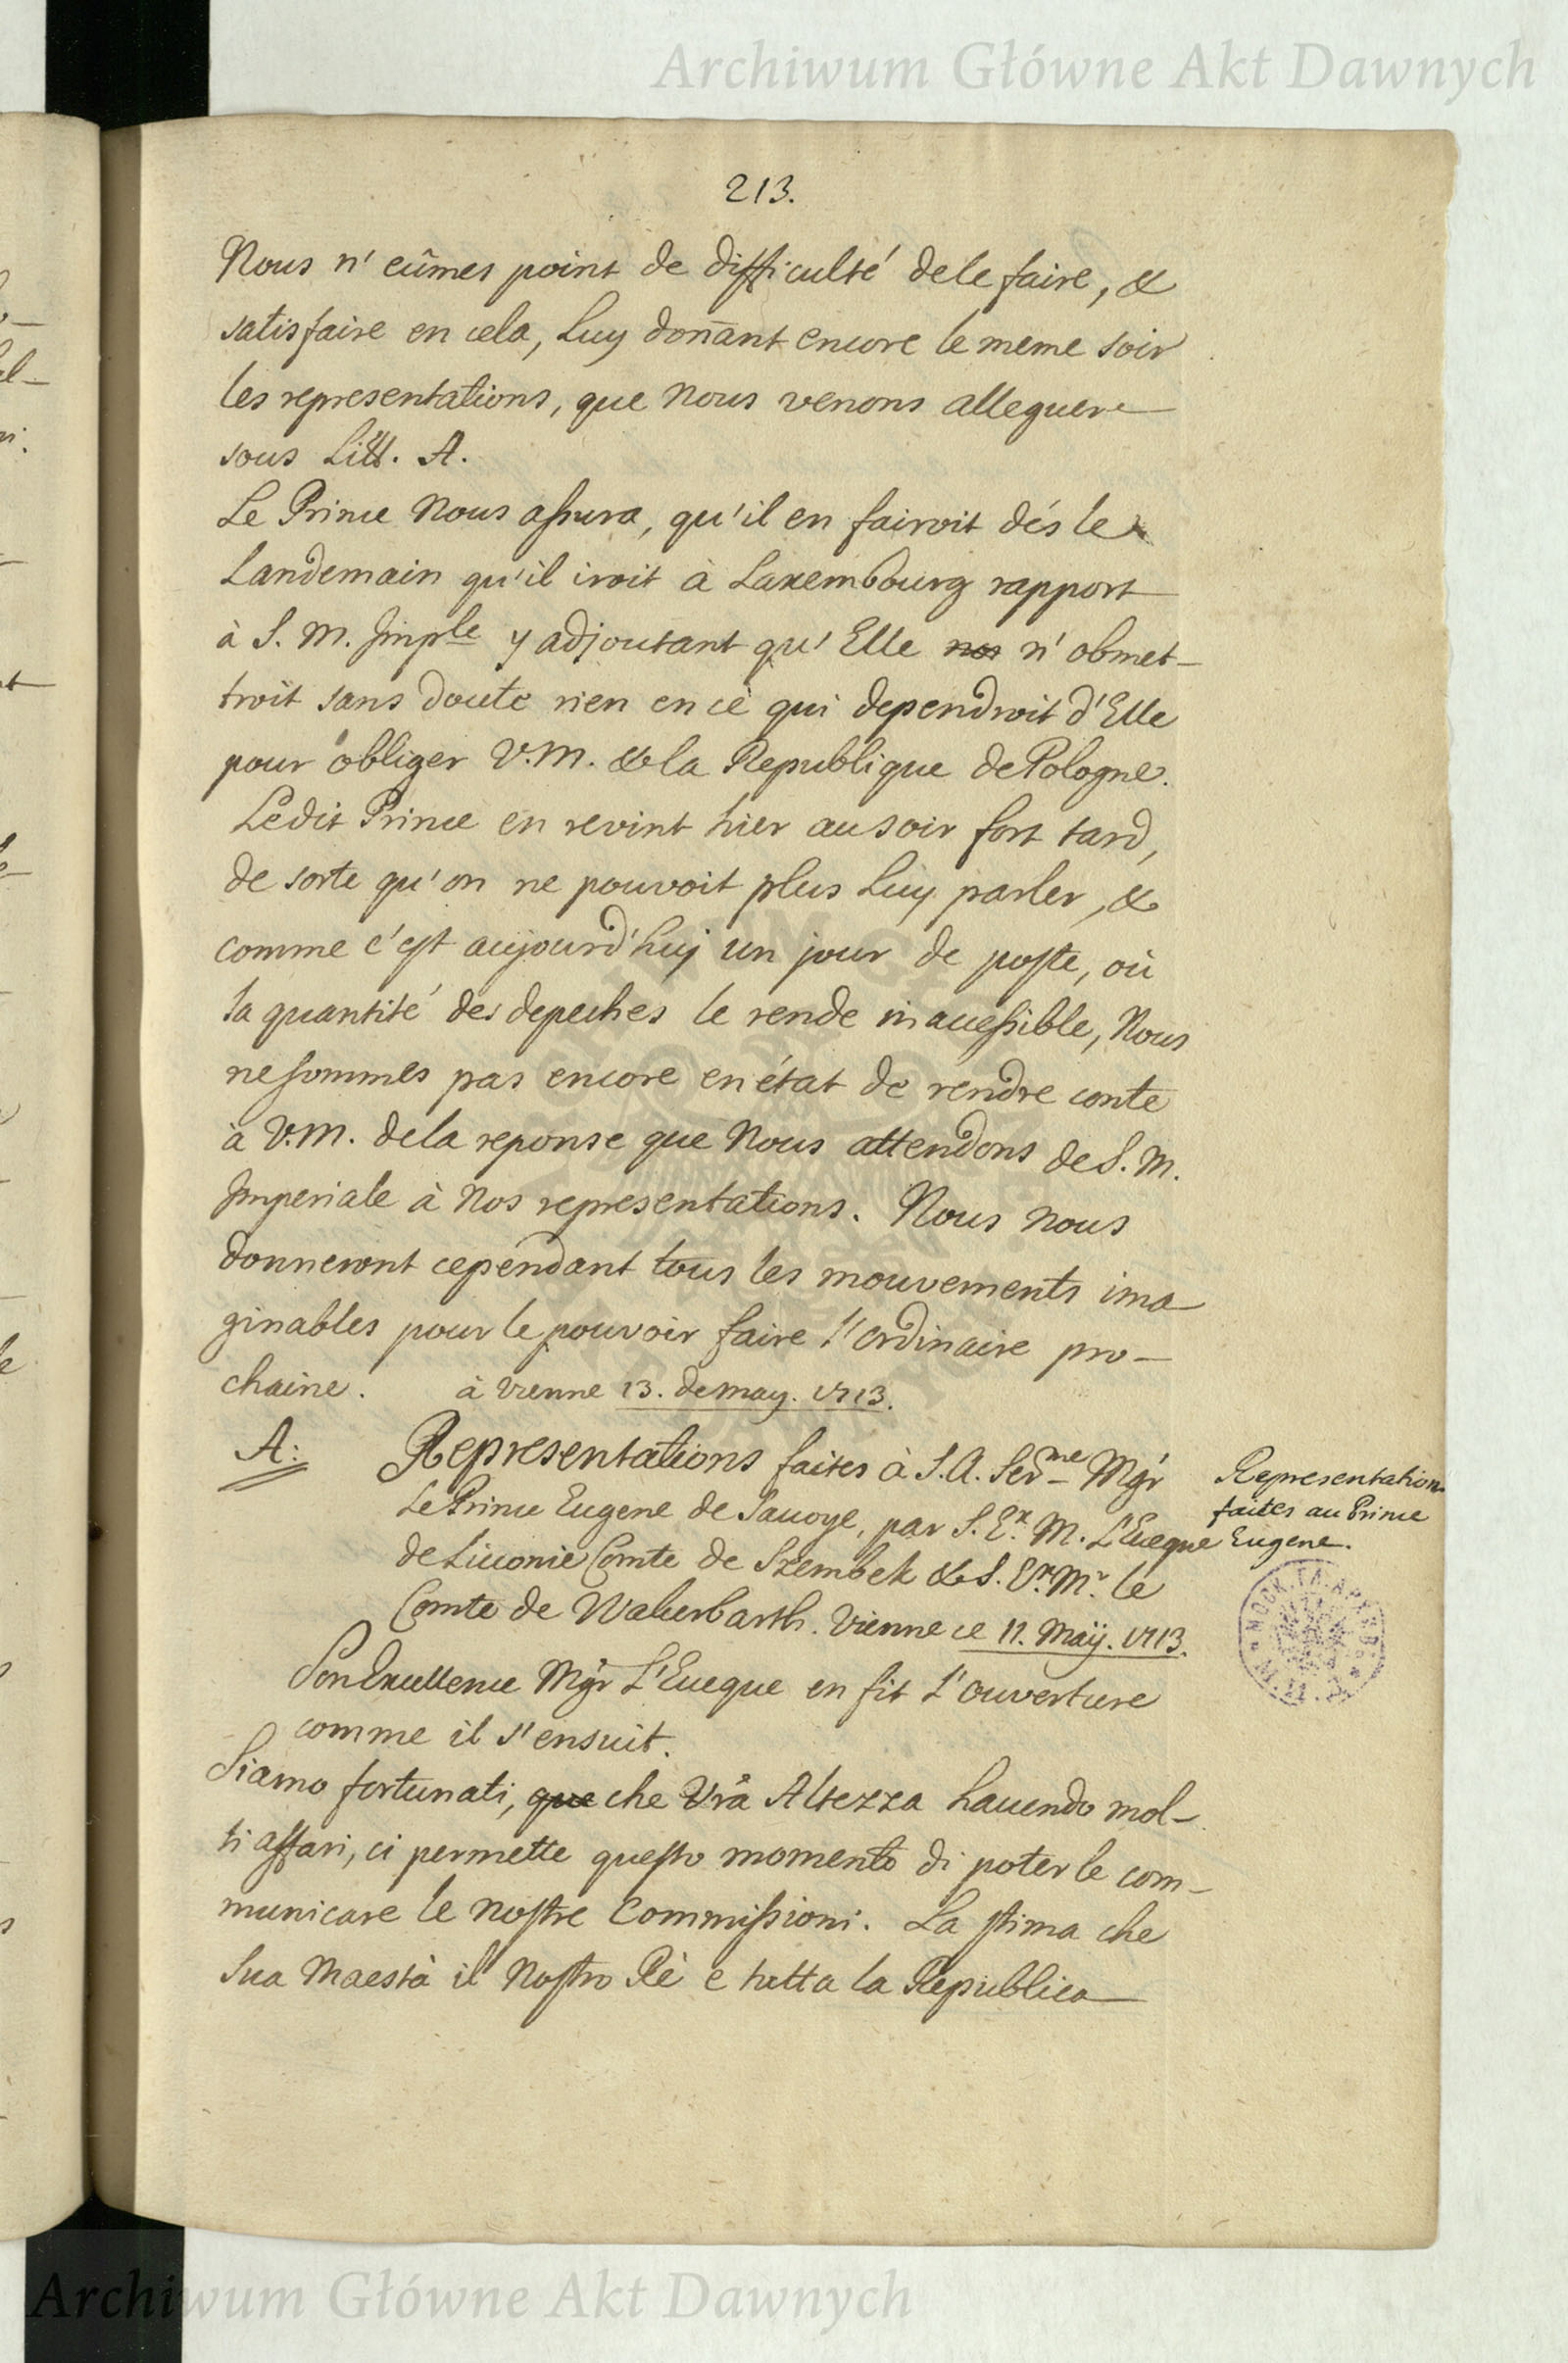 Archiwum Główne Akt Dawnych
213.
Nous n' eûmes point de difficulté de le faire, &
satisfaire en cela, Luy don̄ant encore le meme soir
les representations, que Nous venons alleguer
sous Litt. A.
Le Prince Nous assura, qu'il en fairoit dés le
Landemain qu'il iroit à Laxembourg rapport
à S. M. Imple y adjoutant qu' Elle n' obmet-
troit sans doute rien en ce qui dependroit d'Elle
pour obliger V.M. & la Republique de Pologne.
Ledit Prince en revint hier au soir fort tard,
de sorte qu'on ne pouvoit plus Luy parler, &
comme c'est aujourd'huj un jour de poste, où
la quantité des depeches le rende inaccessible, Nous
ne sommes pas encore en état de rendre conte
à V.M. de la reponse que Nous attendons de S. M.
Imperiale à Nos representations. Nous nous
donneront cependant tous les mouvements ima-
ginables pour le pouvoir faire l'ordinaire pro-
chaine. à Vienne 13. de may. 1713.
A: Representations faites à S. A. Serme Mgr
Le Prince Eugene de Savoye, par S. Ex. M. L'Eueque
de Liuonie Comte de Szembek & S. Ex. Mr le
Comte de Wakerbarth. Vienne ce 11. Maÿ. 1713.
Representations
faites au Prince
Eugene.
Son Excellence Mgr L'Eueque en fit l'ouverture
comme il s'ensuit.
Siamo fortunati, que che Vrâ Altezza hauendo mol-
ti affari, ci permette questo momento di poterle com-
municare le nostre Commissioni. La stima che
Sua Maestà il Nostro Rè e tutta la Republica
Archiwum Główne Akt Dawnych